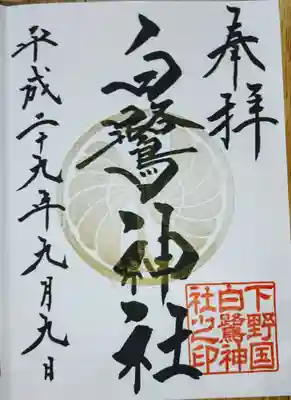 奉拝
白鷺神社
平成二十九年九月九日
下野国
白鷺神
社之印